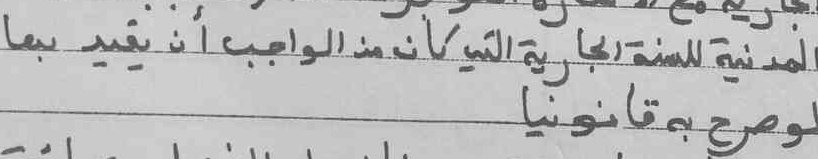 المدنية للسنة الجارية التي كان من الواجب أن يقيد بها
لو صرح به قانونيا